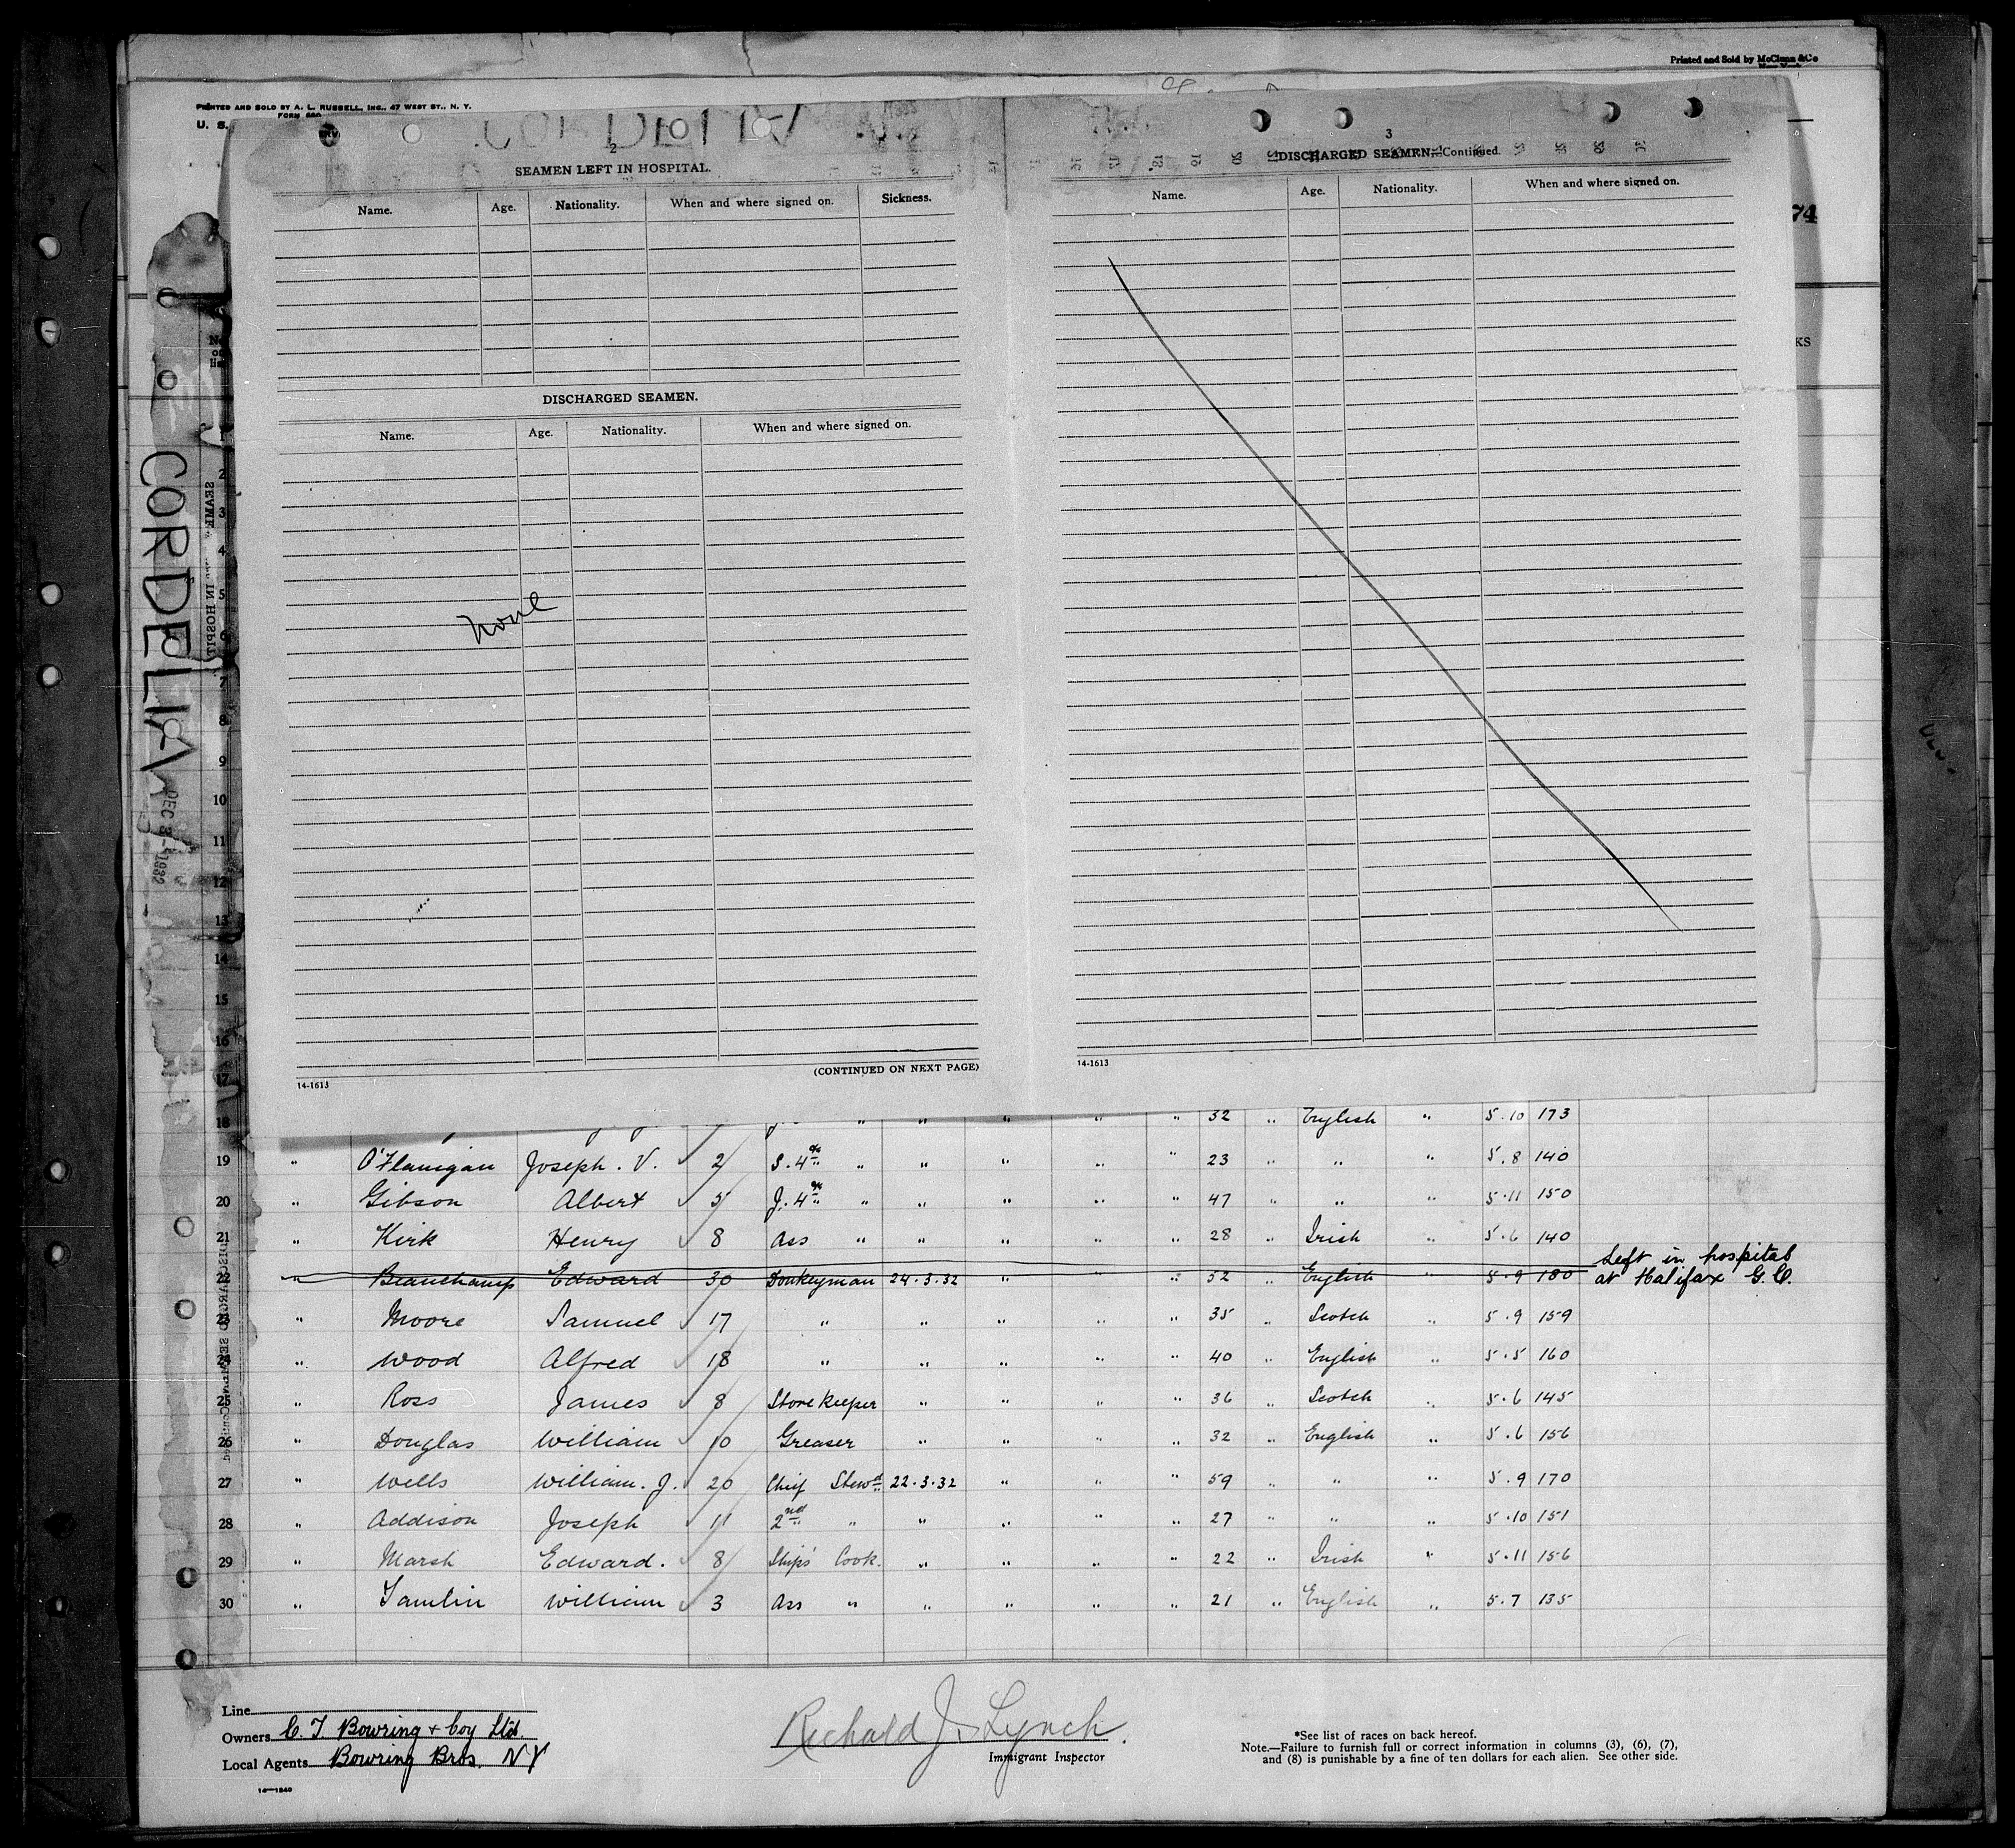 Printed and Sold by McClunn & Co
New York
PRINTED AND SOLD BY A. L. RUSSELL, INC., 47 WEST ST., N. Y.
FORM 680
U. S.
74
KS
CORDELIA
DEC 3-1932
CORDELIA
2
SEAMEN LEFT IN HOSPITAL.
Name. Age. Nationality. When and where signed on. Sickness.
DISCHARGED SEAMEN.
Name. Age. Nationality. When and where signed on.
None
14-1613
(CONTINUED ON NEXT PAGE)
3
DISCHARGED SEAMEN—Continued.
Name. Age. Nationality. When and where signed on.
14-1613
2
3
4
5
6
7
8
9
10
11
12
13
14
15
16
17
18 " " " " " 32 " English " 5.10 173
19 " O'Flanigan Joseph. V. 2 S. 4th " " " " " 23 " " " 5.8 140
20 " Gibson Albert 5 J. 4th " " " " " 47 " " " 5.11 150
21 " Kirk Henry 8 Ass " " " " " 28 " Irish " 5.6 140
22 " Beauchamp Edward 30 Donkeyman 24.3.32 " " " 52 " English " 5.9 180 Left in hospital
at Halifax G.C.
23 " Moore Samuel 17 " " " " " 35 " Scotch " 5.9 159
24 " Wood Alfred 18 " " " " " 40 " English " 5.5 160
25 " Ross James 8 Storekeeper " " " " 36 " Scotch " 5.6 145
26 " Douglas William 10 Greaser " " " " 32 " English " 5.6 156
27 " Wells William. J. 20 Chief Stewd 22.3.32 " " " 59 " " " 5.9 170
28 " Addison Joseph 11 2nd " " " " " 27 " " " 5.10 151
29 " Marsh Edward. 8 Ships' Cook. " " " " 22 " Irish " 5.11 156
30 " Tamlin William 3 Ass " " " " " 21 " English " 5.7 135
Line
Owners C. T. Bowring & Coy Ltd.
Local Agents Bowring Bros. NY
14—1240
Richald J. Lynch.
Immigrant Inspector
*See list of races on back hereof.
Note.—Failure to furnish full or correct information in columns (3), (6), (7),
and (8) is punishable by a fine of ten dollars for each alien. See other side.